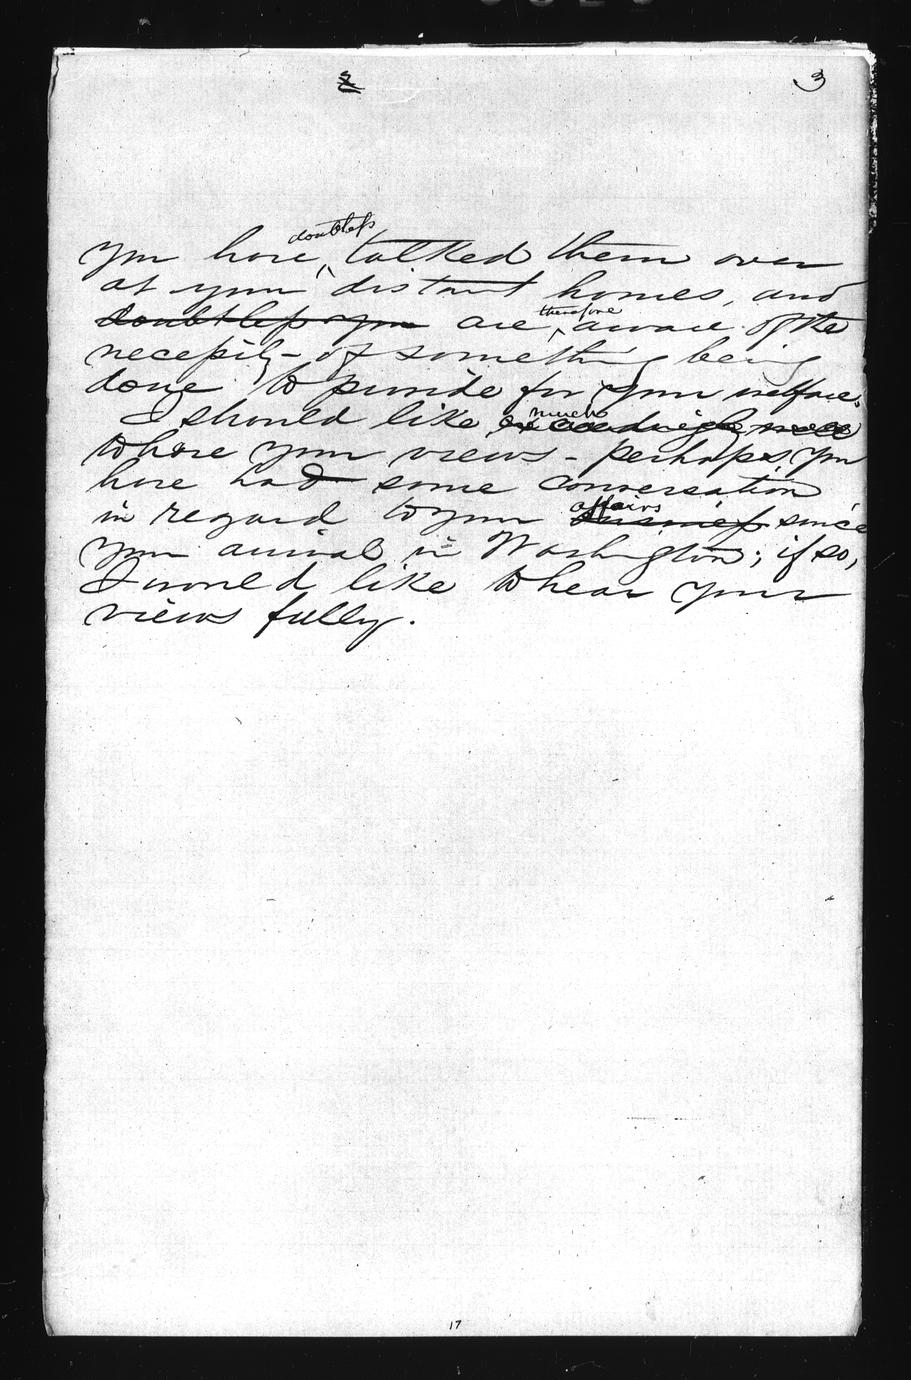 2 3
you have doubtless talked them over
at your distant homes, and
doubtless you are therefore aware of the
necessity of something being
done to provide for your welfare.
I should like much exceedingly well
to have your views - perhaps you
have had some conversation
in regard to your affairs business since
your arrival in Washington; if so,
I would like to hear your
views fully.
17